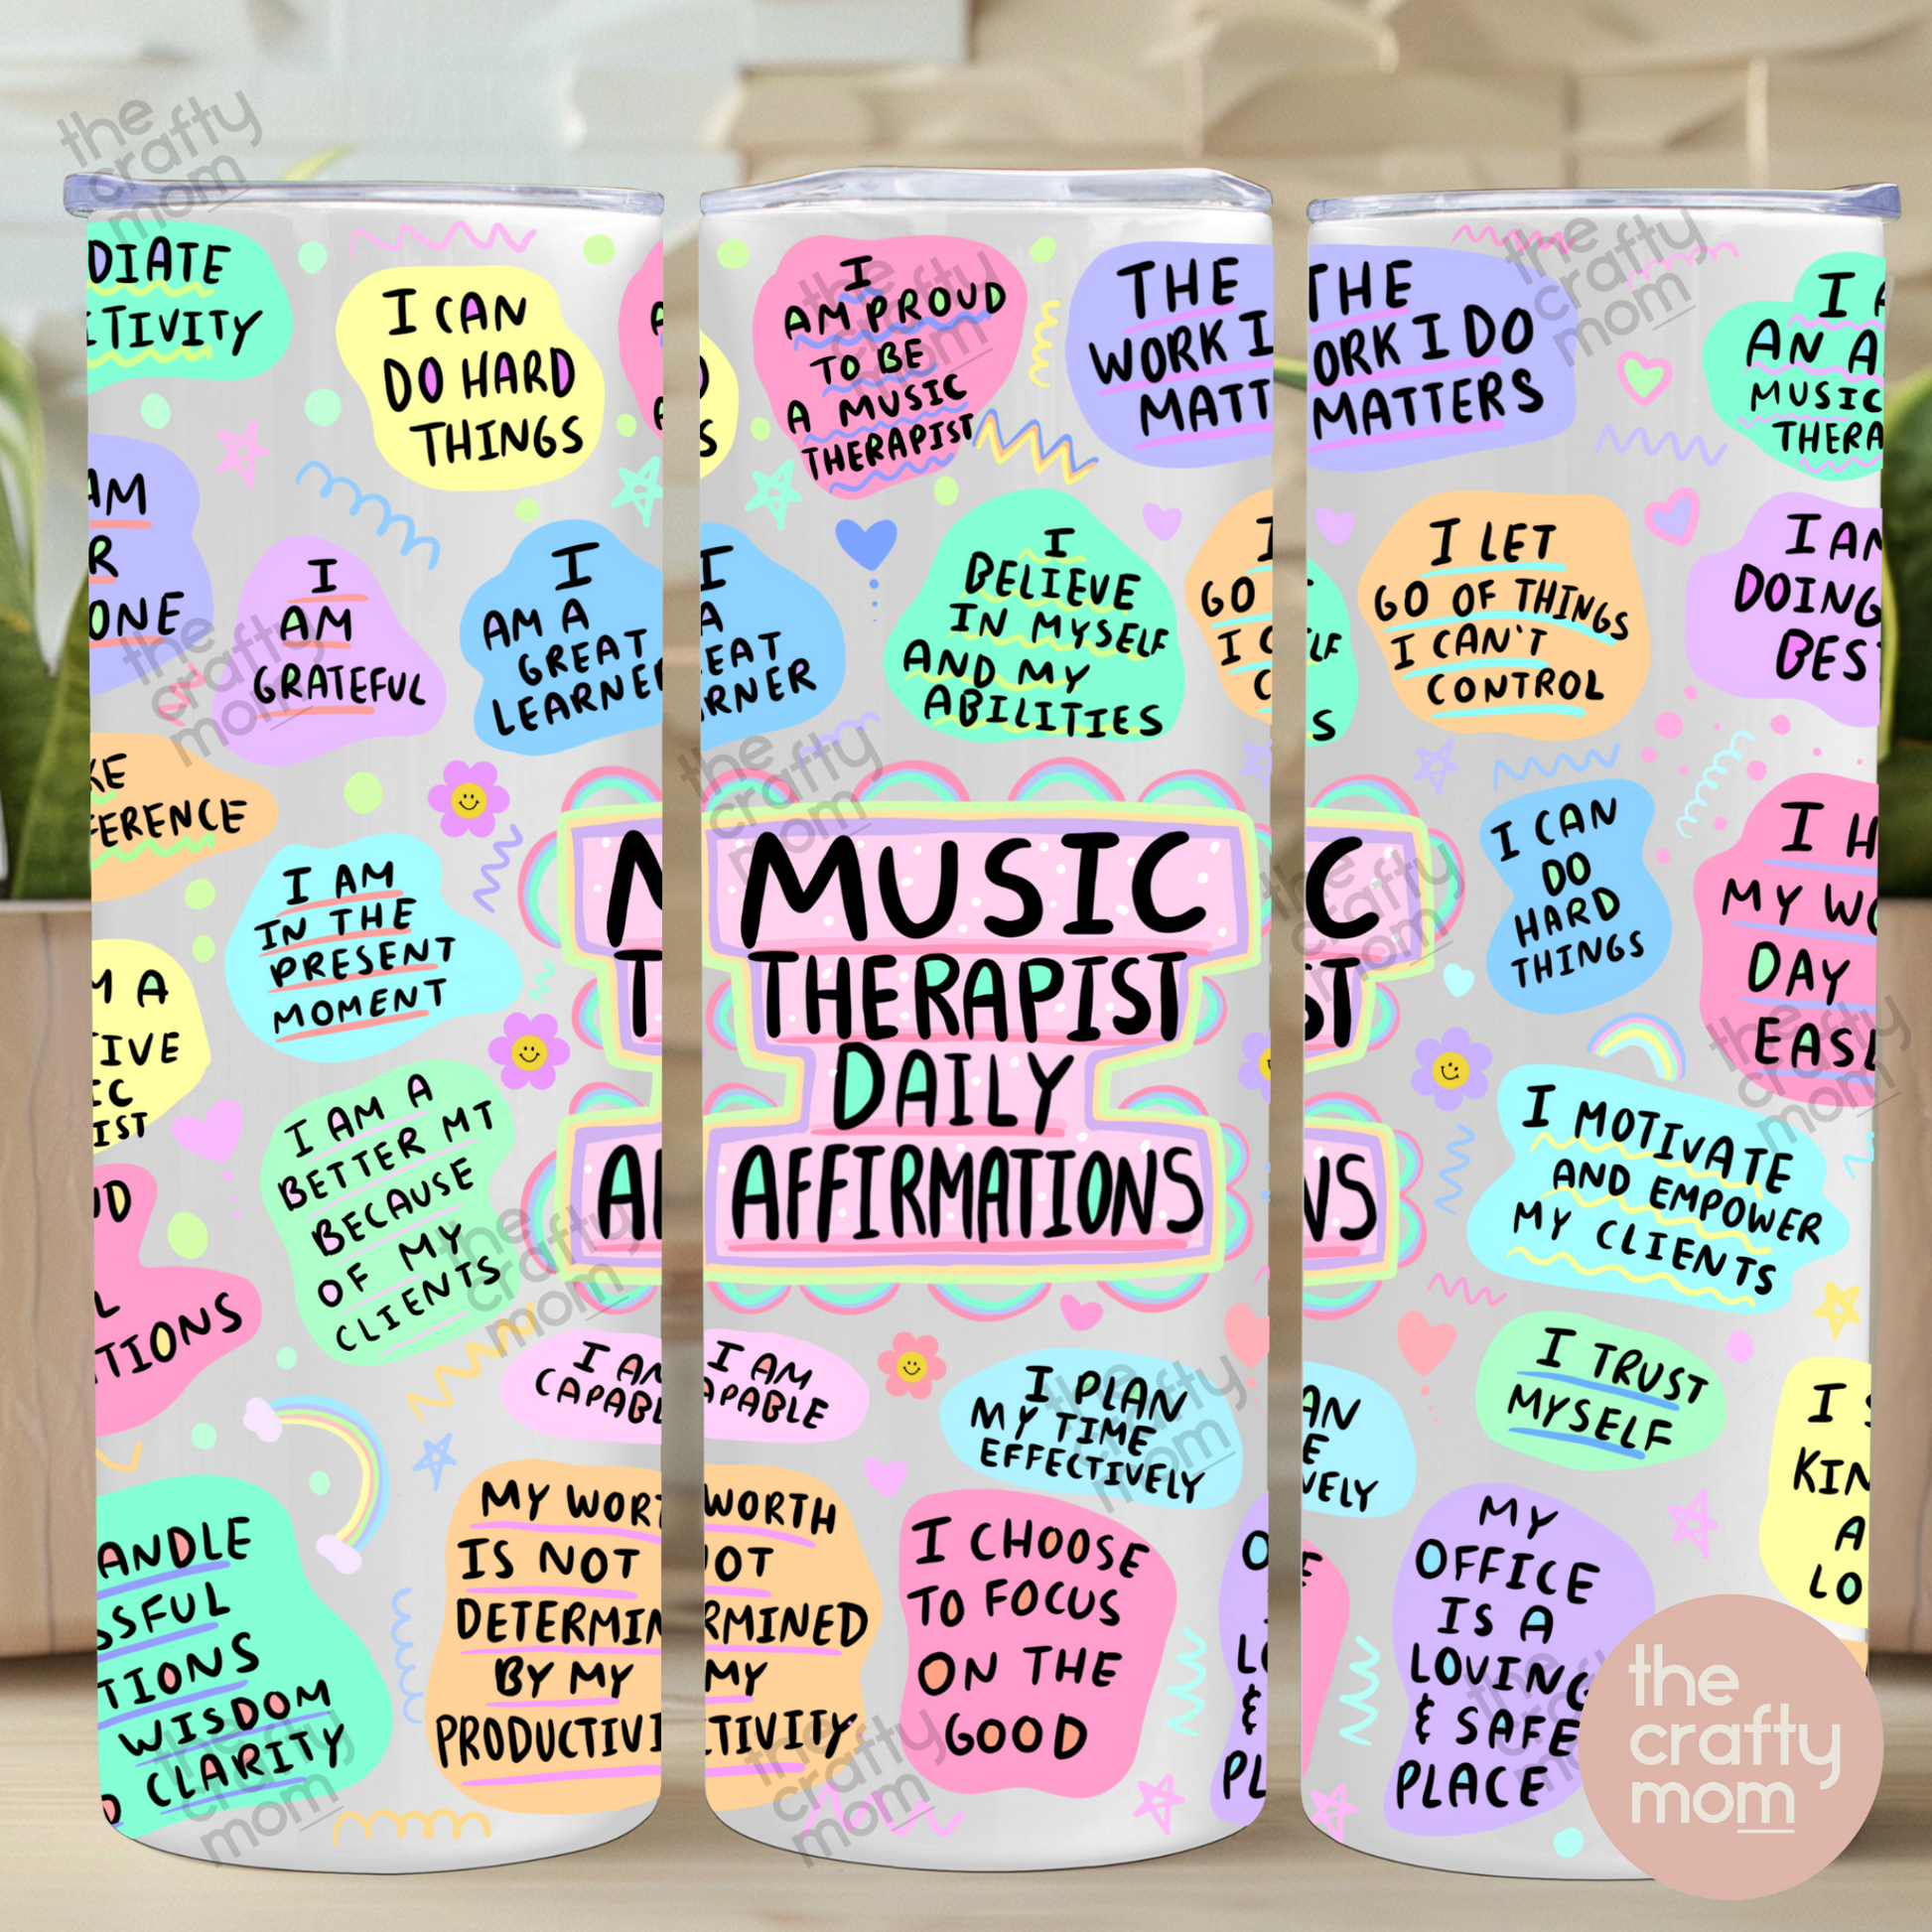 DIATE
TIVITY
I CAN
DO HARD
THINGS
AM
R
ONE
I
AM
GRATEFUL
I
AM A
GREAT
LEARNE
KE
FERENCE
I AM
IN THE
PRESENT
MOMENT
M A
IVE
IC
IST
I AM A
BETTER MT
BECAUSE
OF MY
CLIENTS
UD
L
TIONS
I AM
CAPABL
ANDLE
SSFUL
TIONS
WISDOM
CLARITY
MY WORT
IS NOT
DETERMIN
BY MY
PRODUCTIVI
I
AM PROUD
TO BE
A MUSIC
THERAPIST
THE
WORK I
MATT
I
A
EAT
RNER
I
BELIEVE
IN MYSELF
AND MY
ABILITIES
I
GO
I C
C
MUSIC
THERAPIST
DAILY
AFFIRMATIONS
I AM
APABLE
I PLAN
MY TIME
EFFECTIVELY
WORTH
OT
RMINED
MY
CTIVITY
I CHOOSE
TO FOCUS
ON THE
GOOD
O
L
&
PL
THE
ORK I DO
MATTERS
I A
AN A
MUSIC
THERA
LF
S
I LET
GO OF THINGS
I CAN'T
CONTROL
I AM
DOING
BES
C
ST
NS
I CAN
DO
HARD
THINGS
I H
MY WO
DAY
EASL
I MOTIVATE
AND EMPOWER
MY CLIENTS
AN
E
VELY
I TRUST
MYSELF
I S
KIN
A
LO
MY
OFFICE
IS A
LOVING
& SAFE
PLACE
the
crafty
mom